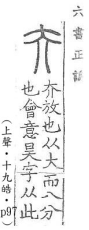 六書正譌
夰放也从大而八分
也會意昊字从此
(上聲·十九皓·p97